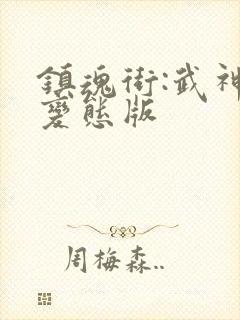 鎮魂街:武神
變態版
周梅森..